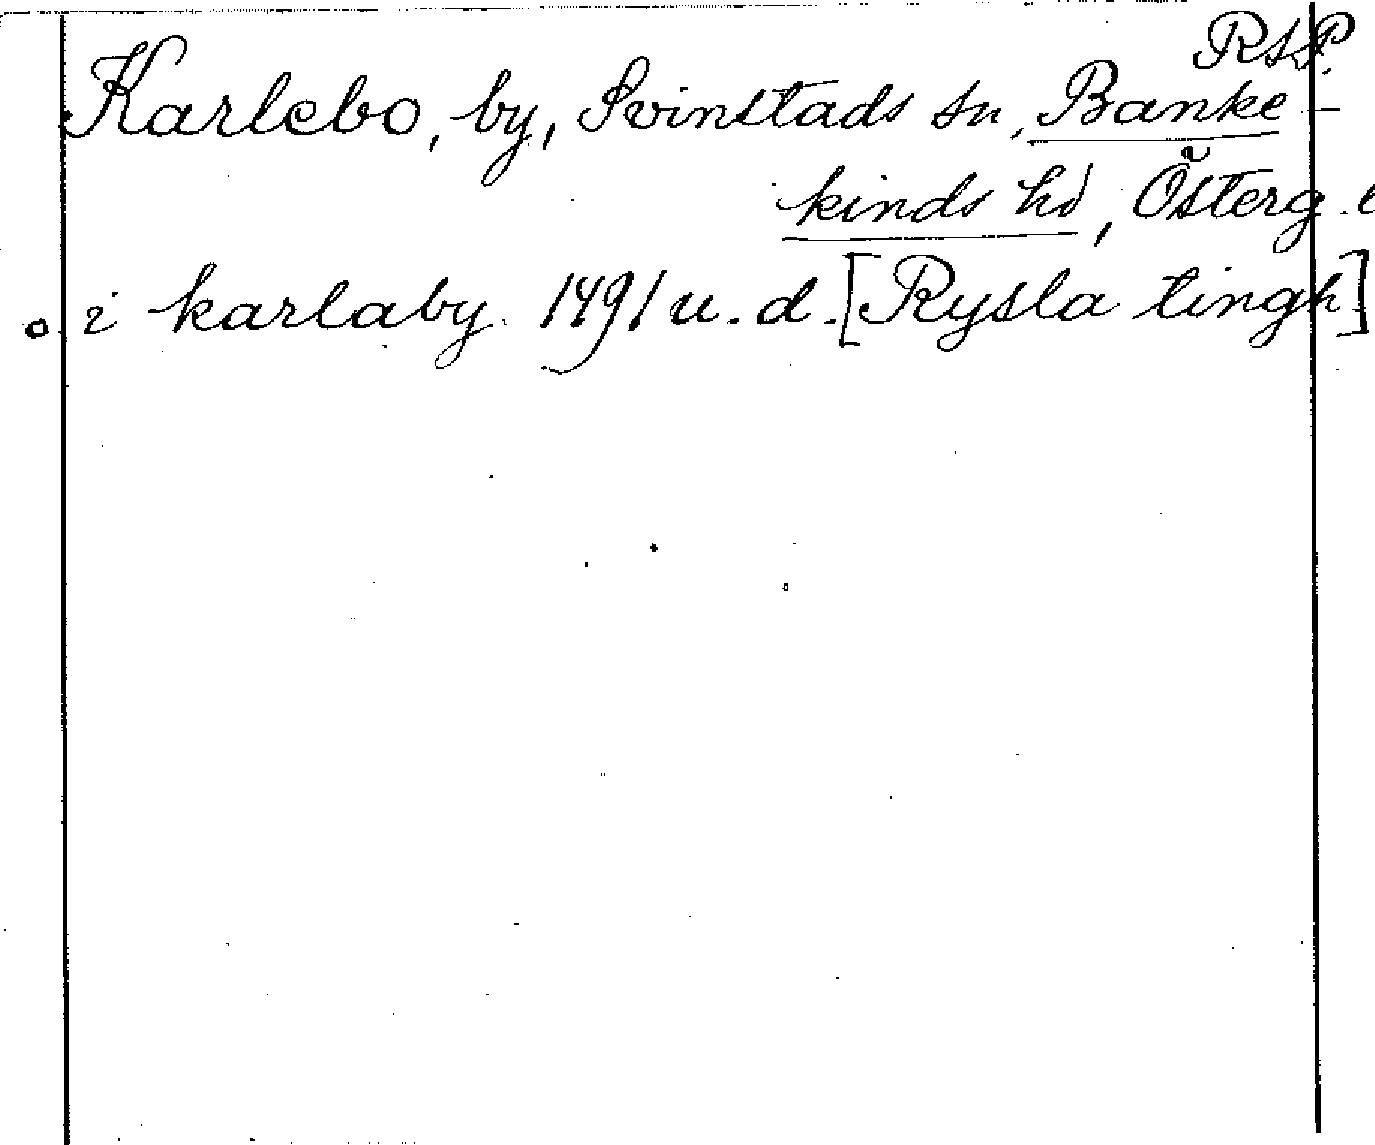 RSP.
Karlebo, by, Svinstads sn, Banke-
kinds hd, Österg. l
o. i karlaby. 1491 u. d. [Rysla tingh]